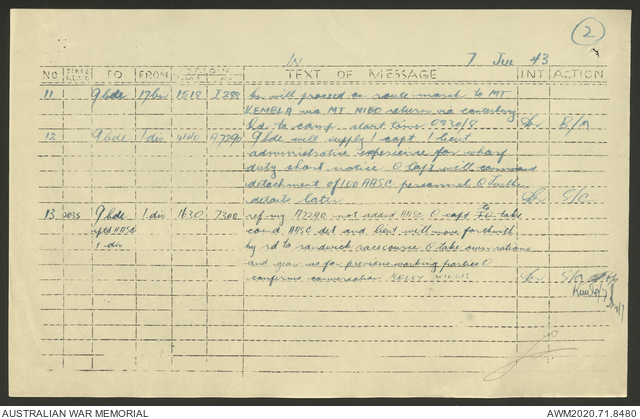 2
IN 7 Jul 43
NO TIME TO FROM ORIGIN TEXT OF MESSAGE INT ACTION
11 9 bde 17 bn 1518 bn will proceed on route march to MT
KEMBLA via MT NIBO return via
to camp start time 0830/8
12 9 bde 1 div A7290 9 bde will supply 1 capt 1 lieut
administrative experience for wharf
duty short notice O Capt will command
detachment of 100 AASC personnel O further
details later
13 2035 9 bde 1 div 1630 7300 ref my A7290 not added AASC O capt to take
rptd AASC comd AASC det and lieut will move forthwith
1 div by rd to randwick racecourse O take own rations
and gear as for previous working parties O
confirms conversation KELLY WILLIS
AUSTRALIAN WAR MEMORIAL AWM2020.71.8480